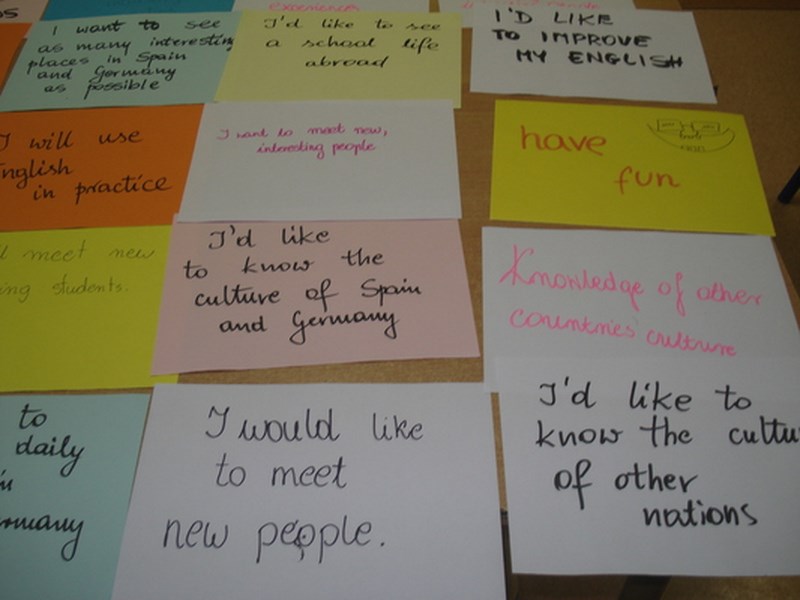 experiences
I want to see
as many interesting
places in Spain
and Germany
as possible
I'd like to see
a school life
abroad
I'D LIKE
TO IMPROVE
MY ENGLISH
I will use
English
in practice
I want to meet new,
interesting people
have
fun
meet new
students.
I'd like
to know the
culture of Spain
and Germany
Knowledge of other
countries' culture
to
daily
I would like
to meet
new people.
I'd like to
know the cultu
of other
nations